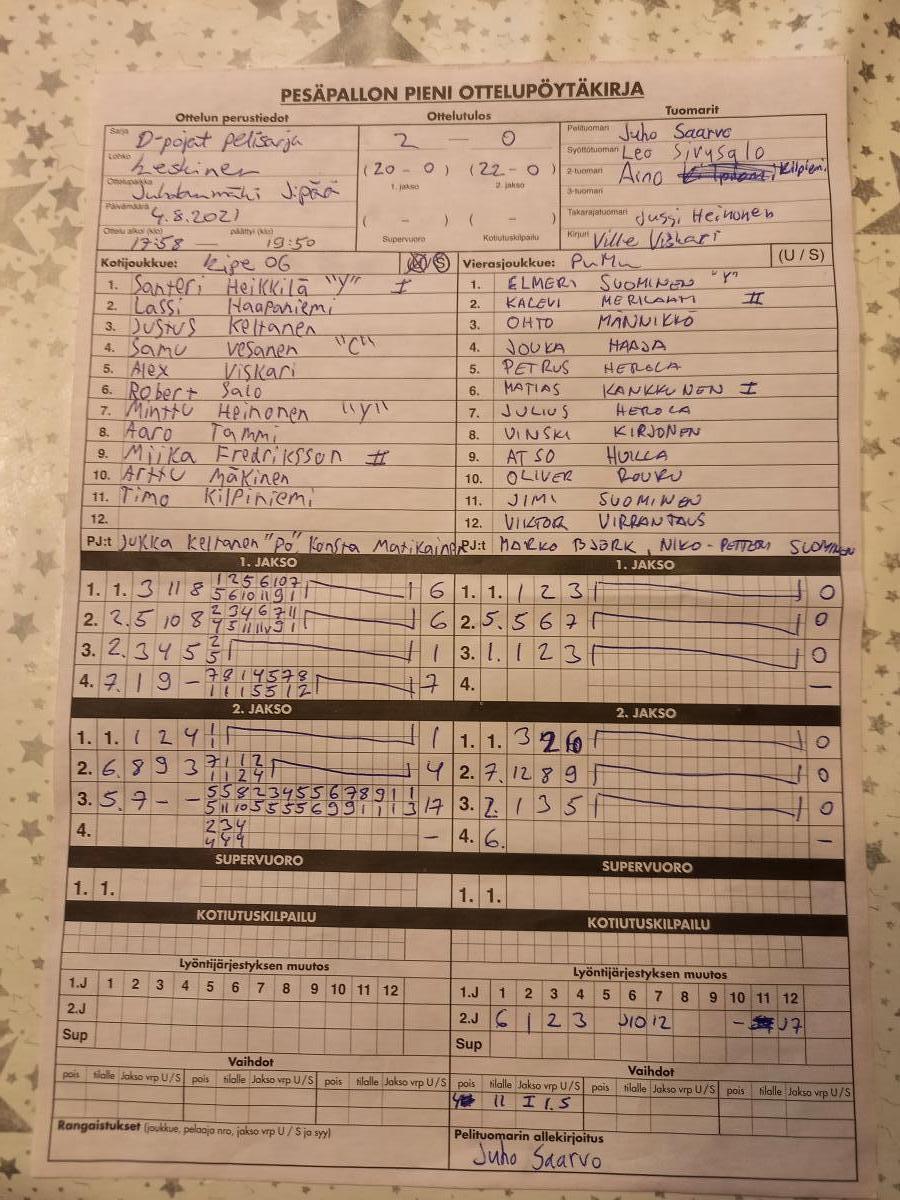 PESÄPALLON PIENI OTTELUPÖYTÄKIRJA
Ottelun perustiedot Ottelutulos Tuomarit
Sarja D-pojat pelisarja
Lohko Leskinen
Ottelupaikka
Päivämäärä 4.8.2021
Ottelu alkoi (klo) 17:58 — päättyi (klo) 19:50
2 — 0
(20 - 0) (22 - 0)
1. jakso 2. jakso
( - ) ( - )
Supervuoro Kotiutuskilpailu
Pelituomari Juho Saarvo
Syöttötuomari Leo Sivusalo
2-tuomari Aino Kilpini
3-tuomari
Takarajatuomari Jussi Heinonen
Kirjuri Ville Viskari
Kotijoukkue: Kipe 06
1. Santeri Heikkilä "Y" I
2. Lassi Haapaniemi
3. Justus Keltanen
4. Samu Vesanen "C"
5. Alex Viskari
6. Robert Salo
7. Minttu Heinonen "Y"
8. Aaro Tammi
9. Miika Fredriksson II
10. Arttu Mäkinen
11. Timo Kilpiniemi
12.
PJ:t Jukka Keltanen "Po" Konsta Matikainen
Vierasjoukkue: PuMu (U / S)
1. ELMERI SUOMINEN "Y"
2. KALEVI MERILAHTI II
3. OHTO MÄNNIKKÖ
4. JOUKA HARJA
5. PETRUS HEROLA
6. MATIAS KANKKUNEN I
7. JULIUS HEROLA
8. VINSKI KIRJONEN
9. ATSO HUILLA
10. OLIVER ROUKU
11. JIMI SUOMINEN
12. VIKTOR VIRRANTAUS
PJ:t MARKO BJÖRK, NIKO-PETTERI SUOMINEN
1. JAKSO
1. 1. 3 11 8 1 2 5 6 10 7 6
5 6 10 11 9 1
2. 2. 5 10 8 2 3 4 6 7 11 6
3. 2. 3 4 5 2 1
5
4. 7. 1 9 - 7 8 1 4 5 7 8 7
1 1 1 5 5 1 2
1. JAKSO
1. 1. 1 2 3 0
2. 5. 5 6 7 0
3. 1. 1 2 3 0
4. —
2. JAKSO
1. 1. 1 2 4 1 1
1
2. 6. 8 9 3 7 1 1 2 4
1 1 2 4
3. 5. 7 - - 5 5 8 2 3 4 5 5 6 7 8 9 11 1 17
5 11 10 5 5 5 5 6 9 9 1 1 1 3
4. 2 3 4 —
4 4 4
2. JAKSO
1. 1. 3 2 6 0
2. 7. 12 8 9 0
3. 2. 1 3 5 0
4. 6. —
SUPERVUORO
1. 1.
SUPERVUORO
1. 1.
KOTIUTUSKILPAILU
KOTIUTUSKILPAILU
Lyöntijärjestyksen muutos
1.J 1 2 3 4 5 6 7 8 9 10 11 12
2.J
Sup
Lyöntijärjestyksen muutos
1.J 1 2 3 4 5 6 7 8 9 10 11 12
2.J 6 1 2 3 10 12 -
Sup
Vaihdot
pois tilalle Jakso vrp U/S pois tilalle Jakso vrp U/S pois tilalle Jakso vrp U/S
Vaihdot
pois tilalle Jakso vrp U/S pois tilalle Jakso vrp U/S pois tilalle Jakso vrp U/S
11 I 1.S
Rangaistukset (joukkue, pelaaja nro, jakso vrp U / S ja syy)
Pelituomarin allekirjoitus
Juho Saarvo